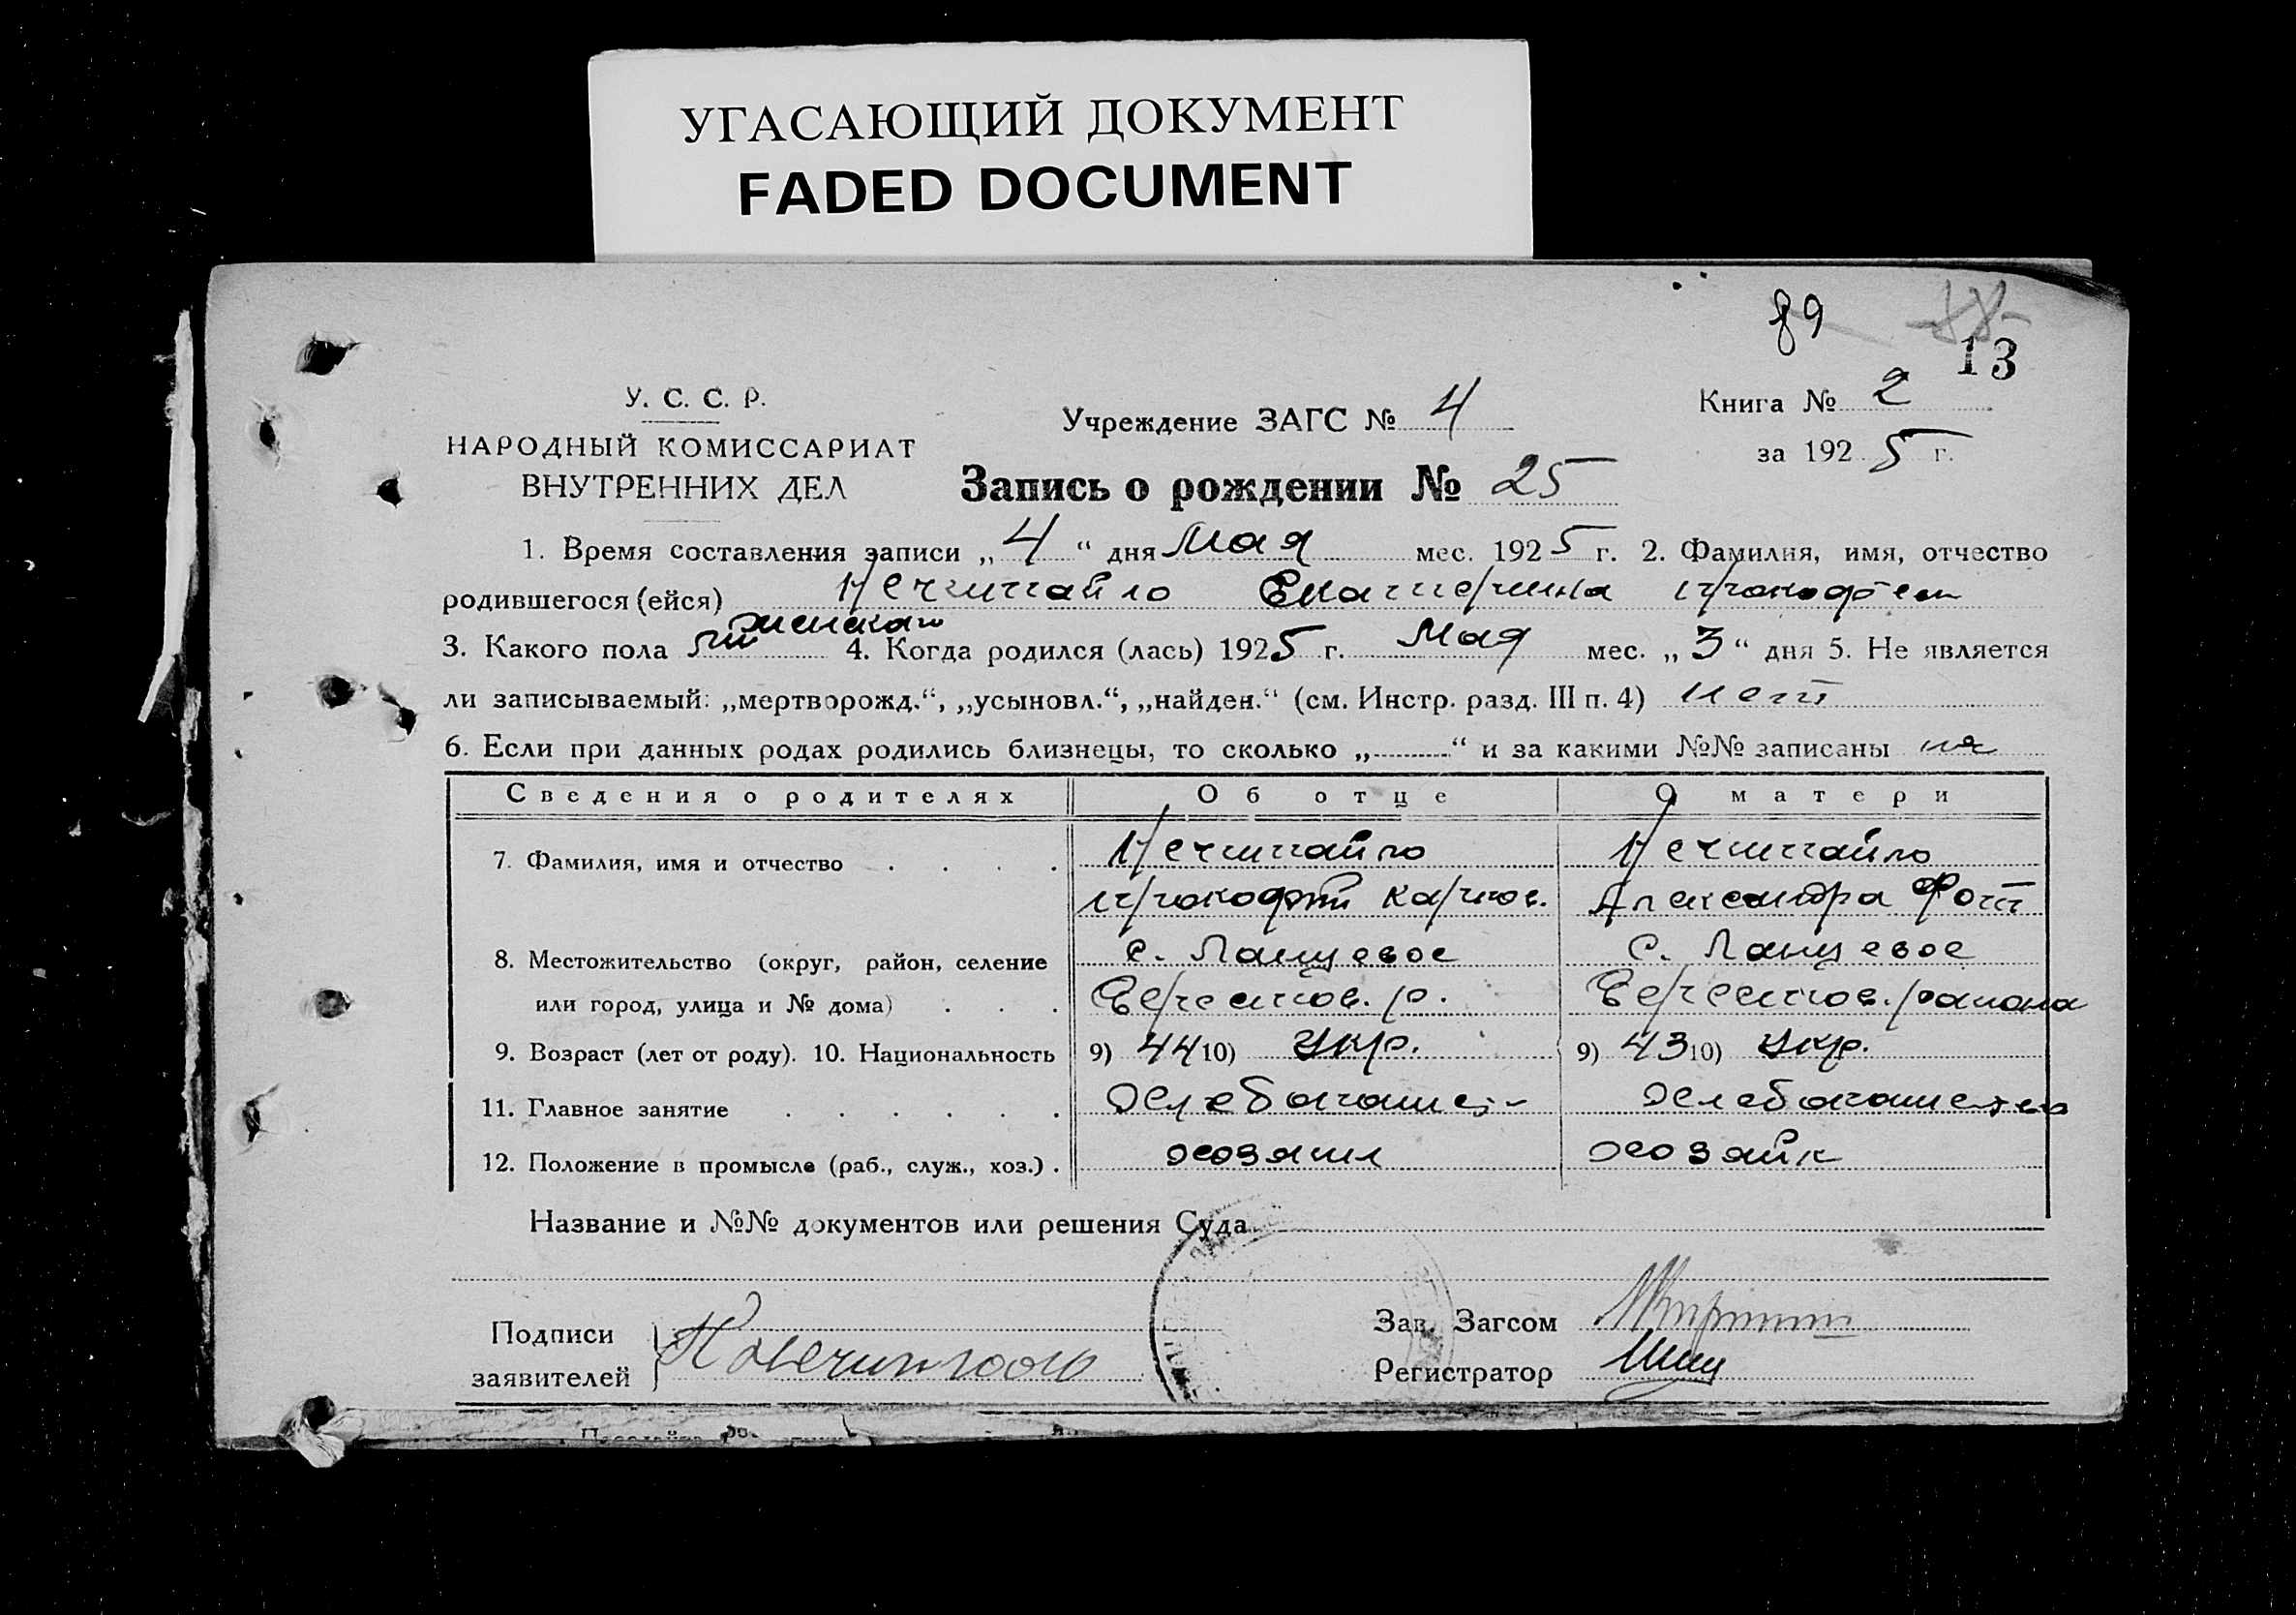 УГАСАЮЩИЙ ДОКУМЕНТ
FADED DOCUMENT
89
13
У. С. С. Р.
НАРОДНЫЙ КОМИССАРИАТ
ВНУТРЕННИХ ДЕЛ
Учреждение ЗАГС № 4
Книга № 2
за 1925 г.
Запись о рождении № 25
1. Время составления записи „4“ дня Мая мес. 1925 г. 2. Фамилия, имя, отчество
родившегося (ейся) Нечитайло Екатерина Прокофьев
3. Какого пола женскаго 4. Когда родился (лась) 1925 г. Мая мес. „3“ дня 5. Не является
ли записываемый: „мертворожд.“, „усыновл.“, „найден.“ (см. Инстр. разд. III п. 4) нет
6. Если при данных родах родились близнецы, то сколько „“ и за какими №№ записаны
Сведения о родителях Об отце О матери
7. Фамилия, имя и отчество Нечитайло Нечитайло
Прокофий Карпов. Александра Фот
8. Местожительство (округ, район, селение с. Ланцевое с. Ланцевое
или город, улица и № дома) Берестов. р. Берестов. района
9. Возраст (лет от роду). 10. Национальность 9) 44 10) Укр. 9) 43 10) Укр.
11. Главное занятие Хлебопашец Хлебопашество
12. Положение в промысле (раб., служ., хоз.) хозяин хозяйк
Название и №№ документов или решения Суда
Подписи
заявителей
Зав. Загсом
Регистратор